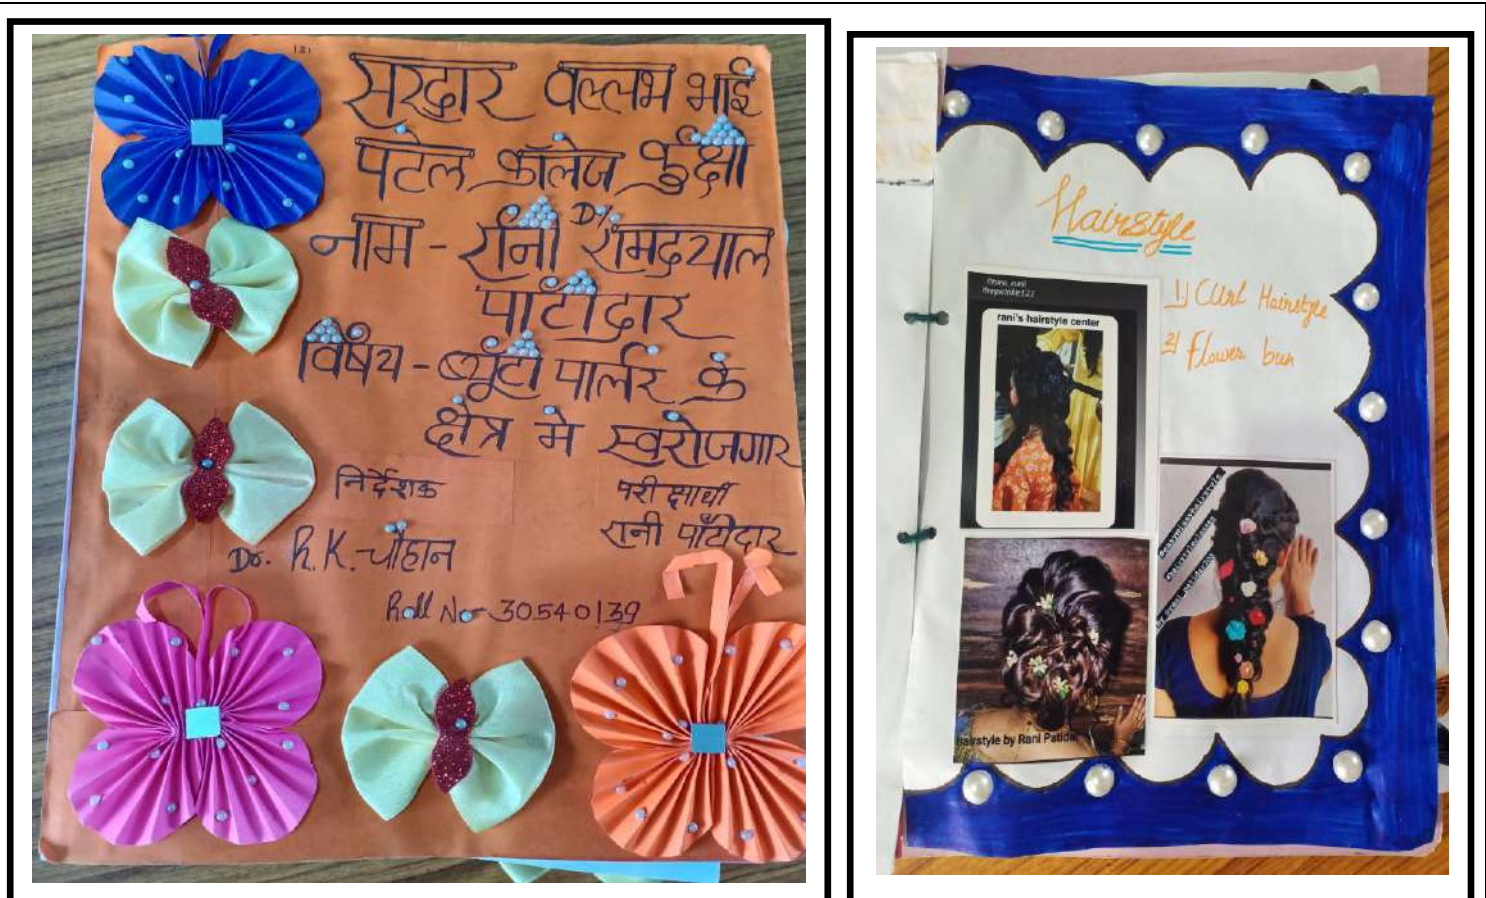 121
सरदार वल्लभ भाई
पटेल कॉलेज कुक्षी
नाम - रानी D/ रामदयाल
पाटीदार
विषय - ब्यूटी पार्लर के
क्षेत्र मे स्वरोजगार
निर्देशक
Dr. R.K. चौहान
परीक्षार्थी
रानी पाटीदार
Roll No- 30540139
Hairstyle
1) Curl Hairstyle
2) Flower bun
rani's hairstyle center
hairstyle by Rani Patidar